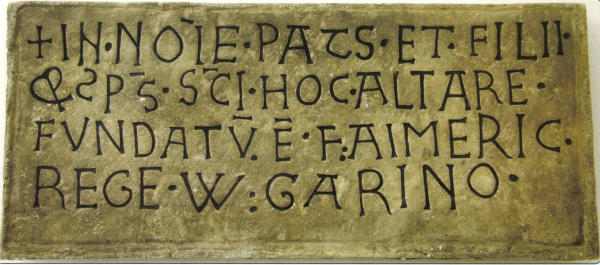 +IN·NOĪE·PATS·ET·FILII·
&SP̄S·SC̄I·HOC·ALTARE·
FVNDATV̄.Ē·F:AIMERIC·
REGE·W:GARINO·